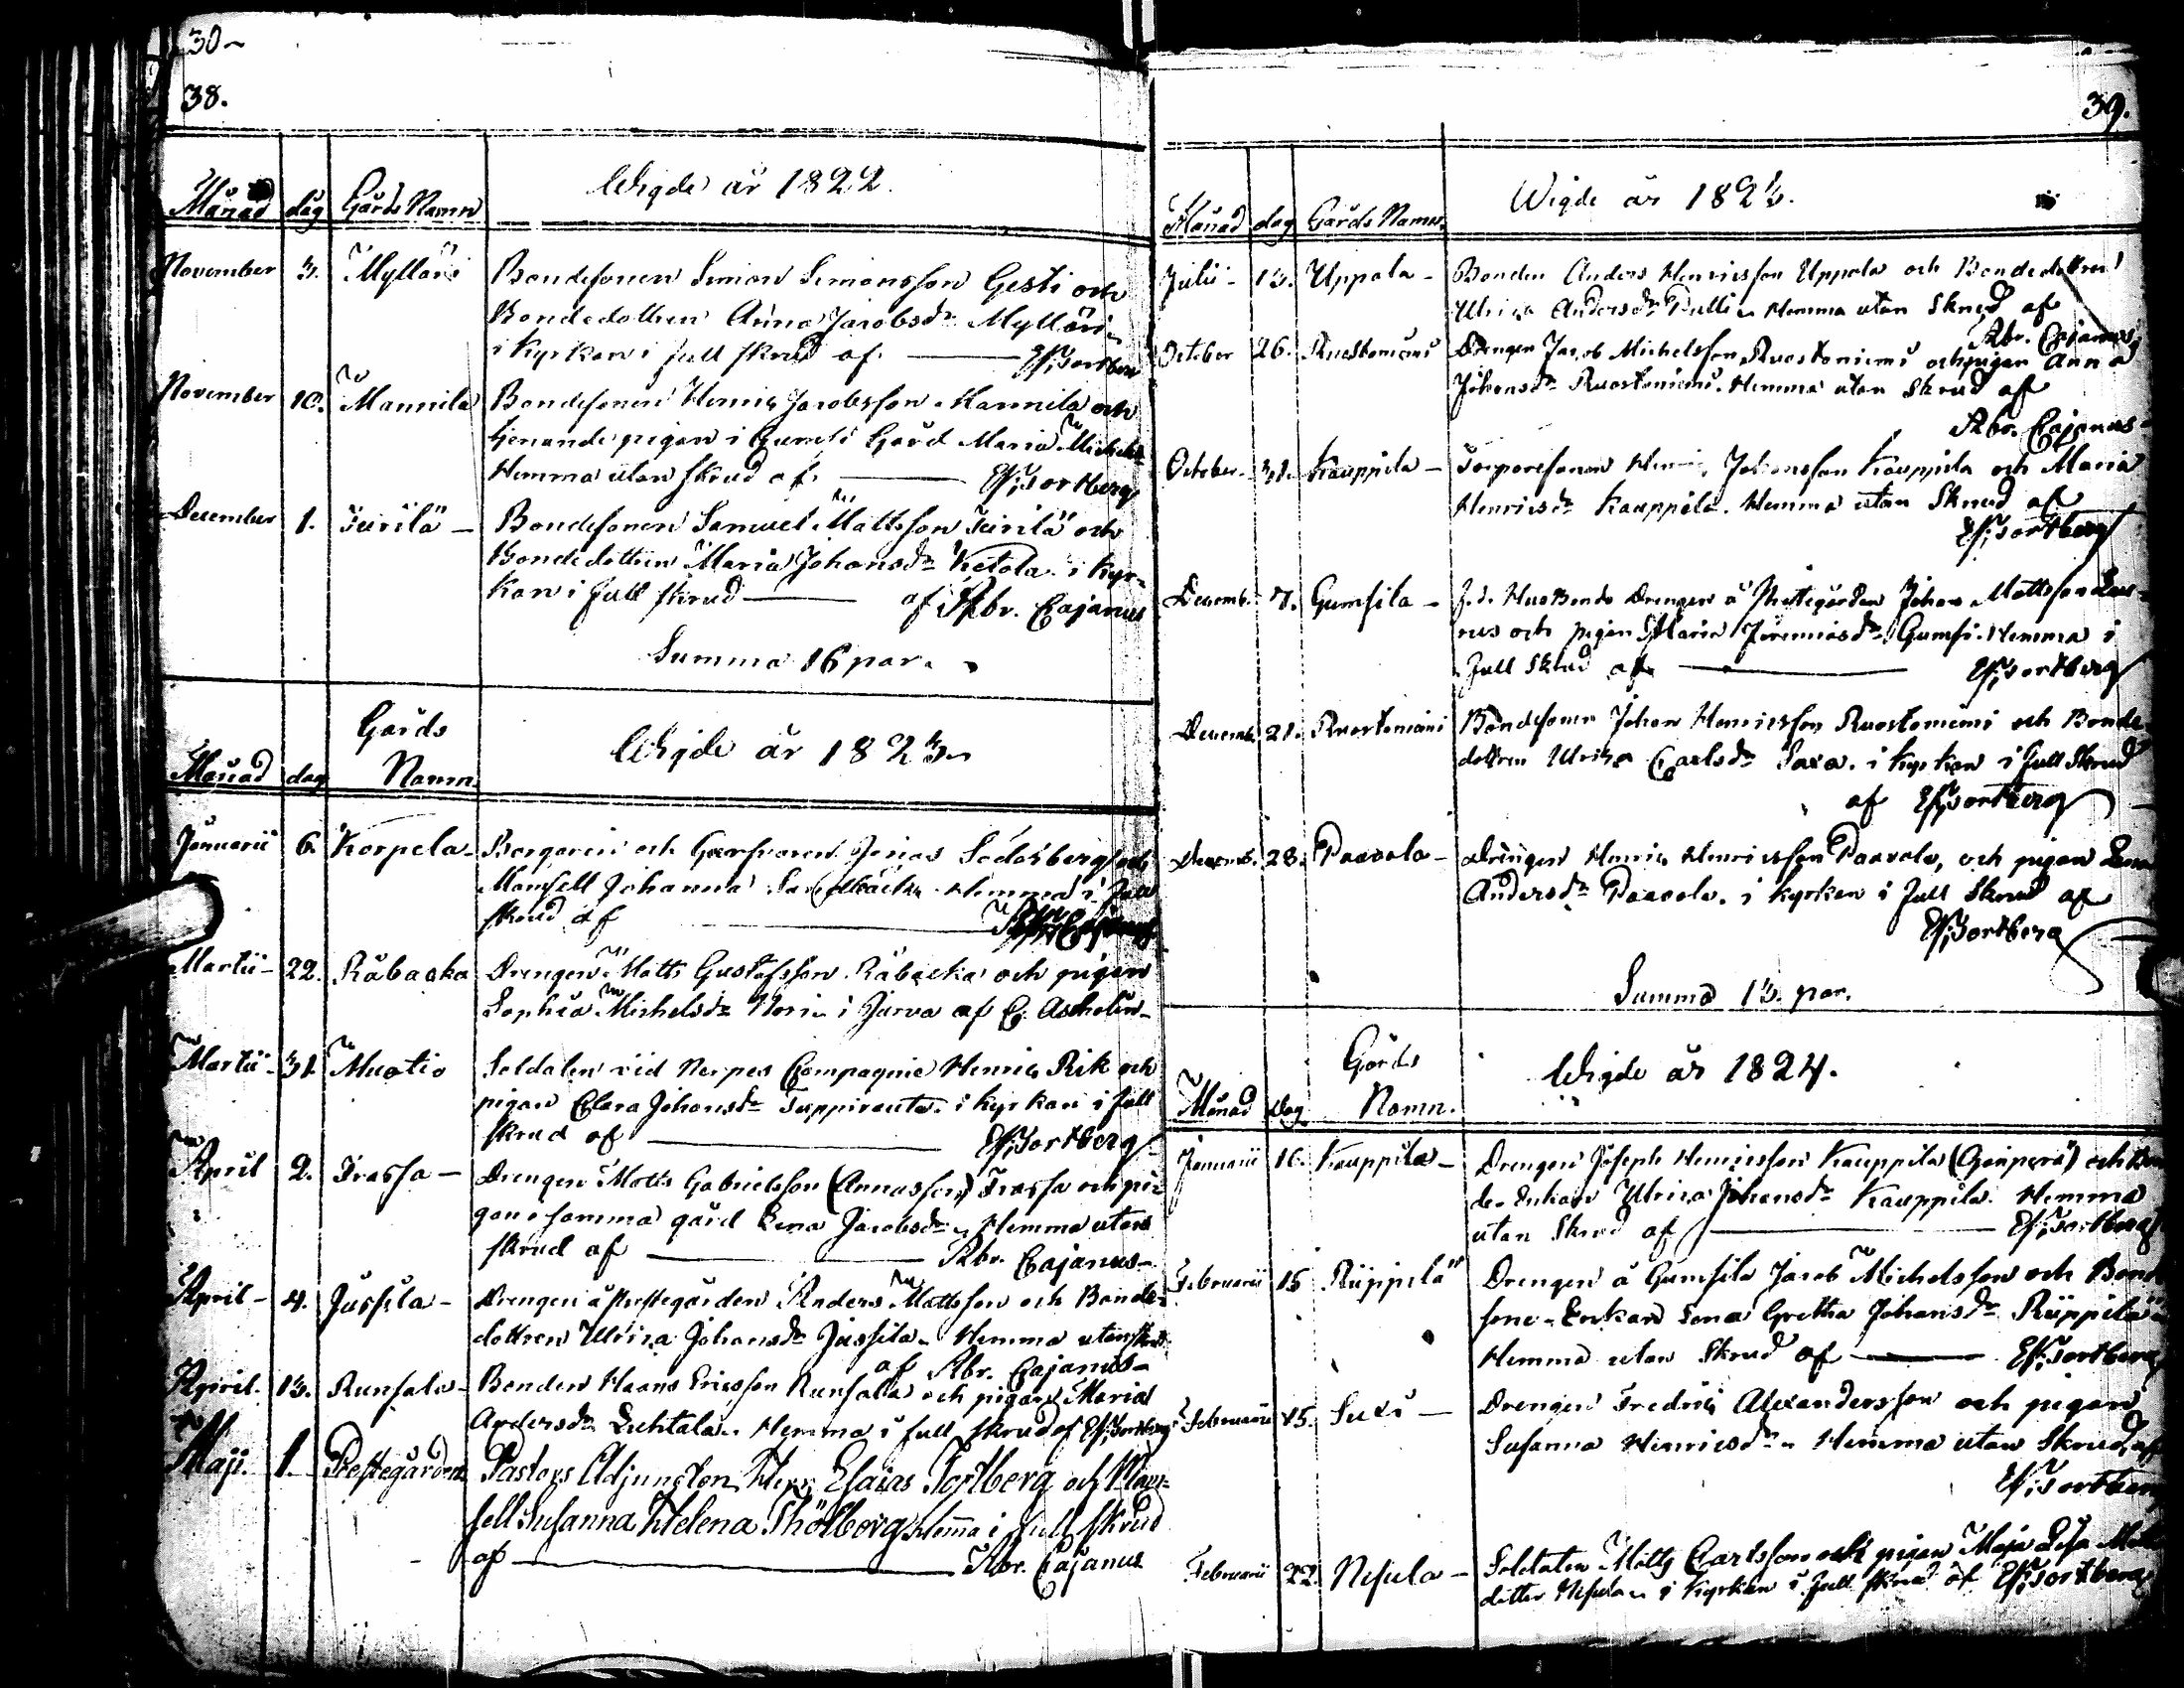 30
38.
Månad dag Gårds Namn Wigde år 1822.
November 3. Mylläri Bondesonen Simon Simonsson Gesti och
Bondedottren Anna Jacobsdr Mylläri
i Kyrkan i full skrud af Es; Fortberg
November 10. Mannila Bondesonen Henric Jacobsson Mannila och
tjenande pigan i Gumsi Gård Maria Michelsdr
Hemma utan skrud af Es; Fortberg
December 1. Turilä Bondesonen Samuel Mattsson Turilä och
Bondedottren Maria Johansdr Ketola i Kyr-
kan i full skrud af Abr. Cajanus
Summa 16 par.
Månad dag Gårds Namn. Wigde år 1823
Januarii 6. Korpela Borgaren och Garfvaren Jonas Söderberg och
Mamsell Johanna Hemma i full
skrud af
Martii 22. Råbacka Drengen Matts Gustafsson Råbacka och pigan
Sophia Michelsdr i Jurva af
Martii 31. Muotio Soldaten vid Nerpes Compagnie Henric Rik och
pigan Clara Johansdr i Kyrkan i full
skrud af Es; Fortberg
April 2. Frassa Drengen Matts Gabrielsson (Annasson) Frassa och pi-
gan i samma gård Lena Jacobsdr Hemma utan
skrud af Abr. Cajanus
April 4. Jussila Drengen å Prestegården Anders Mattsson och Bonde-
dottren Ulrica Johansdr Jussila Hemma utan skrud
af Abr. Cajanus
April 13. Runsala Bonden Haans Ericsson Runsala och pigan Maria
Andersdr Luhtala. Hemma i full skrud af Es; Fortberg
Maji 1. Prestegården Pastors Adjuncten Herr Esaias Fortberg och Mam-
sell Susanna Helena Thölberg, Hemma i full skrud
af Abr. Cajanus
39.
Månad dag Gårds Namn. Wigde år 1823.
Julii 13. Uppala Bonden Anders Henricsson Uppala och Bondedottren
Ulrica Andersdr Pulli Hemma utan Skrud af
Abr. Cajanus
October 26. Ruostoniemi Drengen Jacob Michelsson Ruostoniemi och pigan Anna
Johansdr Ruostoniemi. Hemma utan Skrud af
Abr. Cajanus
October 31. Kauppila Torparesonen Henric Johansson Kauppila och Maria
Henricsdr Kauppila. Hemma utan Skrud af
Es; Fortberg
Decemb. 7. Gumsila Drengen å Prestegården Johan Mattsson
och pigan Maria Jeremiasdr Gumsi. Hemma i
full Skrud af Es; Fortberg
Decemb. 21. Ruostoniemi Bondesonen Johan Henricsson Ruostoniemi och Bonde-
dottren Ulrica Carlsdr Saxa. i Kyrkan i full Skrud
af Es; Fortberg
Decemb. 28. Paavola Drengen Henric Henricsson Paavola, och pigan Lena
Andersdr Paavola. i Kyrkan i full Skrud af
Es; Fortberg
Summa 13. par.
Månad Dag Gårds Namn. Wigde år 1824.
Januarii 16. Kauppila Drengen Joseph Henricsson Kauppila och Bon-
de-Enkan Ulrica Johansdr Kauppila. Hemma
utan Skrud af Es; Fortberg
Februarii 15 Riippilä Drengen å Gumsila Jacob Michelsson och Bonde
sone-Enkan Lena Gretha Johansdr Riippilä
Hemma utan Skrud af Es; Fortberg
Februarii 15. Suxi Drengen Fredric Alexandersson och pigan
Susanna Henricsdr Hemma utan Skrud, af
Es; Fortberg
Februarii 22. Nisula Soldaten Matts Carlsson och pigan Maja Lisa
dotter Nisula i Kyrkan i full skrud af Es; Fortberg